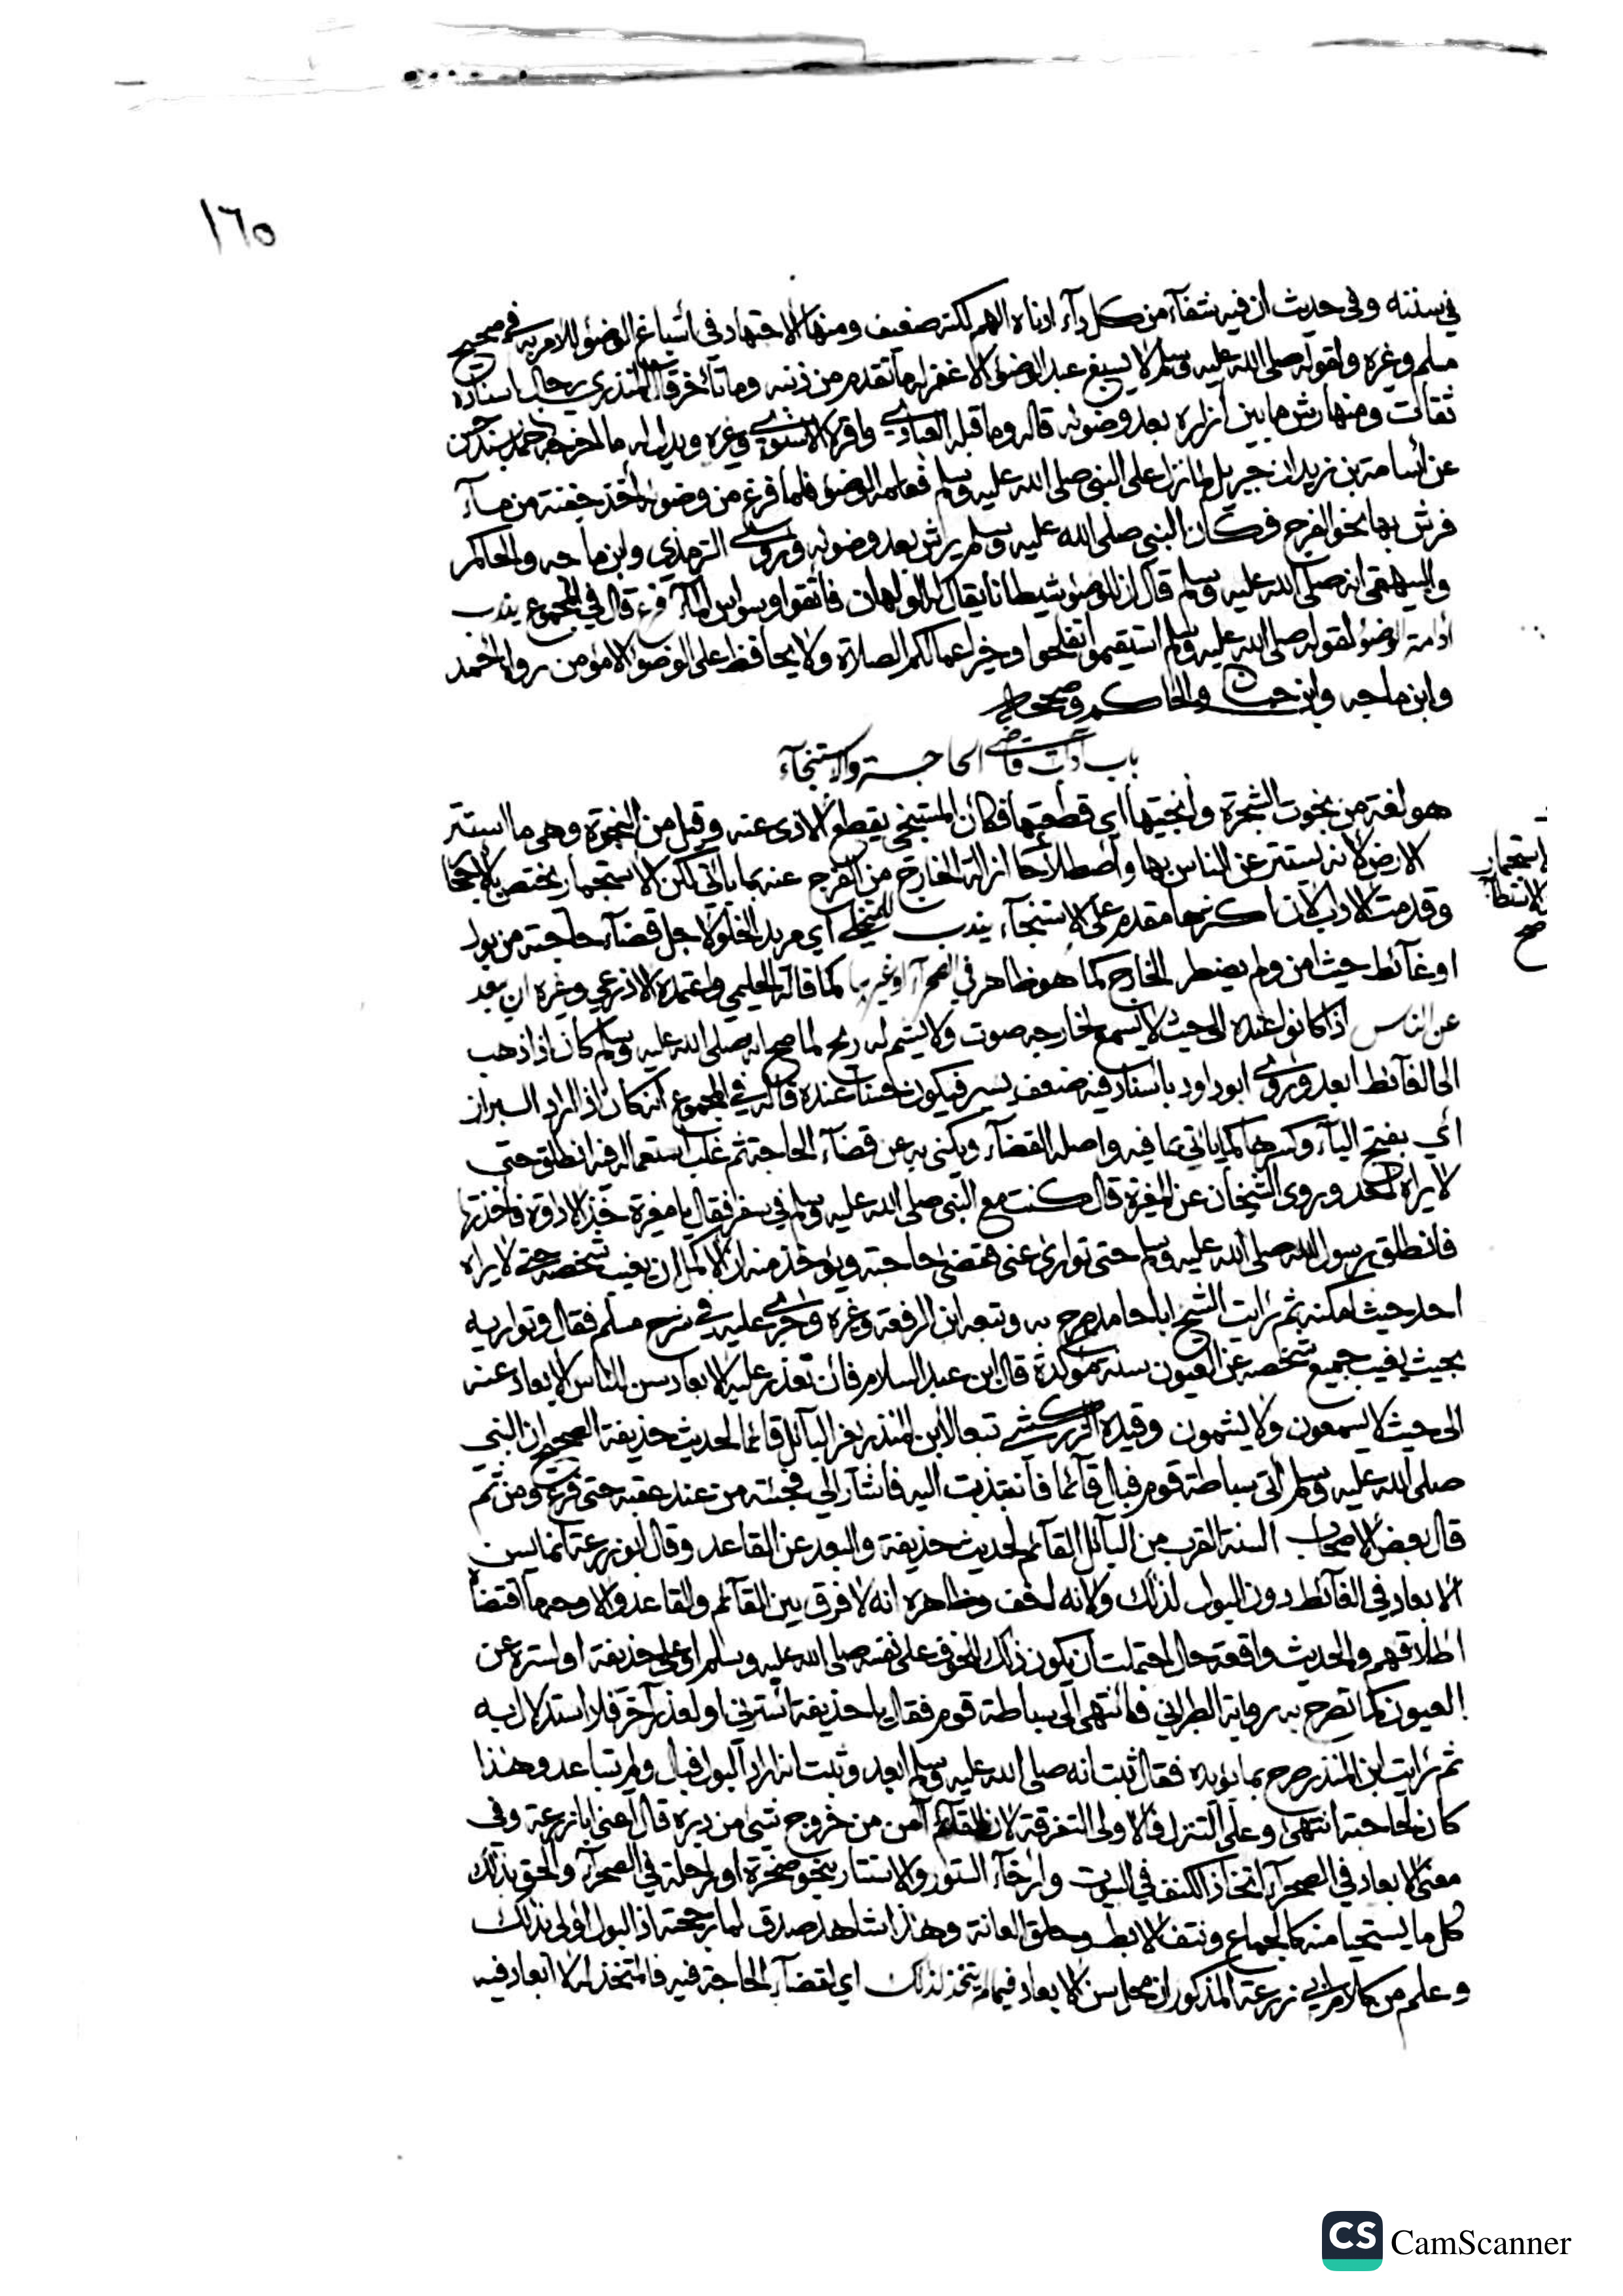 ١٦٥
في سننه وفي حديث ان فيه شفآء من كل دآء ادناه الهم لكنه ضعيف ومنها الاجتهاد في اسباغ الوضوء للامر به في صحيح
مسلم وغيره ولقوله صلى الله عليه وسلم لا يسبغ عبد الوضوء الا غفر له ما تقدم من ذنبه وما تأخر قال المنذري رجال اسناده
ثقات ومنها رش ما بين ازاره بعد وضوئه قاله وما قبله العبادي واقره الاسنوي وغيره ويدل له ما اخرجه احمد بسند حسن
عن اسامة بن زيد ان جبريل لما نزل على النبي صلى الله عليه وسلم فعلمه الوضوء فلما فرغ من وضوئه اخذ حفنة من مآء
فرش بها نحو الفرج فكان النبي صلى الله عليه وسلم يرش بعد وضوئه وروى الترمذي وابن ماجه والحاكم
والبيهقي انه صلى الله عليه وسلم قال ان للوضوء شيطانا يقال له الولهان فاتقوا وسواس المآء فرع قال في المجموع يندب
ادامة الوضوء لقوله صلى الله عليه وسلم استقيموا تفلحوا وخير اعمالكم الصلاة ولا يحافظ على الوضوء الا مؤمن رواه احمد
وابن ماجه وابن حبان والحاكم وصححاه
باب آداب قاضي الحاجة والاستنجآء
هو لغة من نجوت الشجرة وانجيتها اي قطعتها فكان المستنجي يقطع الاذى عنه وقيل من النجوة وهي ما استتر
الارض لانه يستتر عن الناس بها واصطلاحا ازالة الخارج من الفرج عنه بما يأتي لكن الاستجمار يختص بالاحجار
لاستجمار
صح
وقدمت الاداب لان اكثرها مقدم على الاستنجآء يندب للمتخلي اي مريد الخلو لاجل قضآء حاجته من بول
او غآئط حيث امن ولم يضطر الخارج كما هو ظاهر في الصحرآء او غيرها كما قاله الحليمي واعتمده الاذرعي وغيره ان يبعد
عن الناس اذا كانوا عنده الى حيث لا يسمع لخارجه صوت ولا يشم له ريح لما صح انه صلى الله عليه وسلم كان اذا ذهب
الى الغآئط ابعد وروى ابو داود باسناد فيه ضعف يسير فيكون حسنا عنده قاله في المجموع انه كان اذا اراد البراز
اي بفتح البآء وكسرها كما يأتي بما فيه واصله الفضآء ويكنى به عن قضآء الحاجة ثم غلب استعماله فيه انطلق حتى
لا يراه احد وروى الشيخان عن المغيرة قال كنت مع النبي صلى الله عليه وسلم في سفر فقال يا مغيرة خذ الاداوة فاخذتها
فانطلق رسول الله صلى الله عليه وسلم حتى توارى عني فقضى حاجته ويؤخذ منه ان الاكمل ان يغيب شخصه حتى لا يراه
احد حيث امكنه ثم رايت الشيخ ابا حامد صرح به وتبعه ابن الرفعة وغيره وجرى عليه في شرح مسلم فقال وتواريه
بحيث يغيب جميع شخصه عن العيون سنة مؤكدة قال ابن عبد السلام فان تعذر عليه الابعاد سن للناس الابعاد عنه
الى حيث لا يسمعون ولا يشمون وقيده الزركشي تبعا لابن المنذر بغير البآئل قائما لحديث حذيفة الصحيح ان النبي
صلى الله عليه وسلم اتى سباطة قوم فبال قآئما فانتبذت اليه فاشار الي فجئته من عند عقبه حتى فرغ ومن ثم
قال بعض الاصحاب السنة القرب من البآئل القآئم لحديث حذيفة والبعد عن القاعد وقال ابو زرعة انما يسن
الابعاد في الغآئط دون البول لذلك ولانه اخف وظاهره انه لا فرق بين القآئم والقاعد والاوجه ما اقتضاه
اطلاقهم والحديث واقعة حال احتملت ان يكون ذلك لخوف على نفسه صلى الله عليه وسلم او على حذيفة او لستره عن
العيون كما تصرح به رواية الطبراني فانتهى الى سباطة قوم فقال يا حذيفة استرني او لعذر آخر فلا استدلال فيه
ثم رايت ابن المنذر صرح بما يؤيده فقال ثبت انه صلى الله عليه وسلم ابعد وثبت انه اراد البول فبال ولم يتباعد وهذا
كان لحاجته انتهى وعلى التنزل فالاولى التفرقة لان القآئم آمن من خروج شيء من دبره قال اعني ابا زرعة وفي
معنى الابعاد في الصحرآء اتخاذ الكنف في البيوت وارخآء الستور والاستتار بنحو صخرة او راحلة في الصحرآء والحق بذلك
كل ما يستحيا منه كالجماع ونتف الابط وحلق العانة وهذا شاهد صدق لما رجحته اذ البول اولى بذلك
وعلم من كلام ابي زرعة المذكور ان محل سن الابعاد فيما لم يتخذ لذلك اي لقضآء الحاجة فيه فالمتخذ له لا ابعاد فيه
CS CamScanner